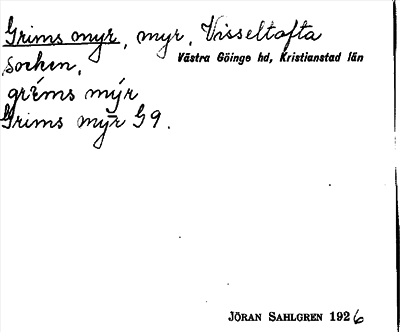 Grims myr, myr, Visseltofta
socken,
Västra Göinge hd, Kristianstad län
gréms mýr
Grims myr G9.
JÖRAN SAHLGREN 1926